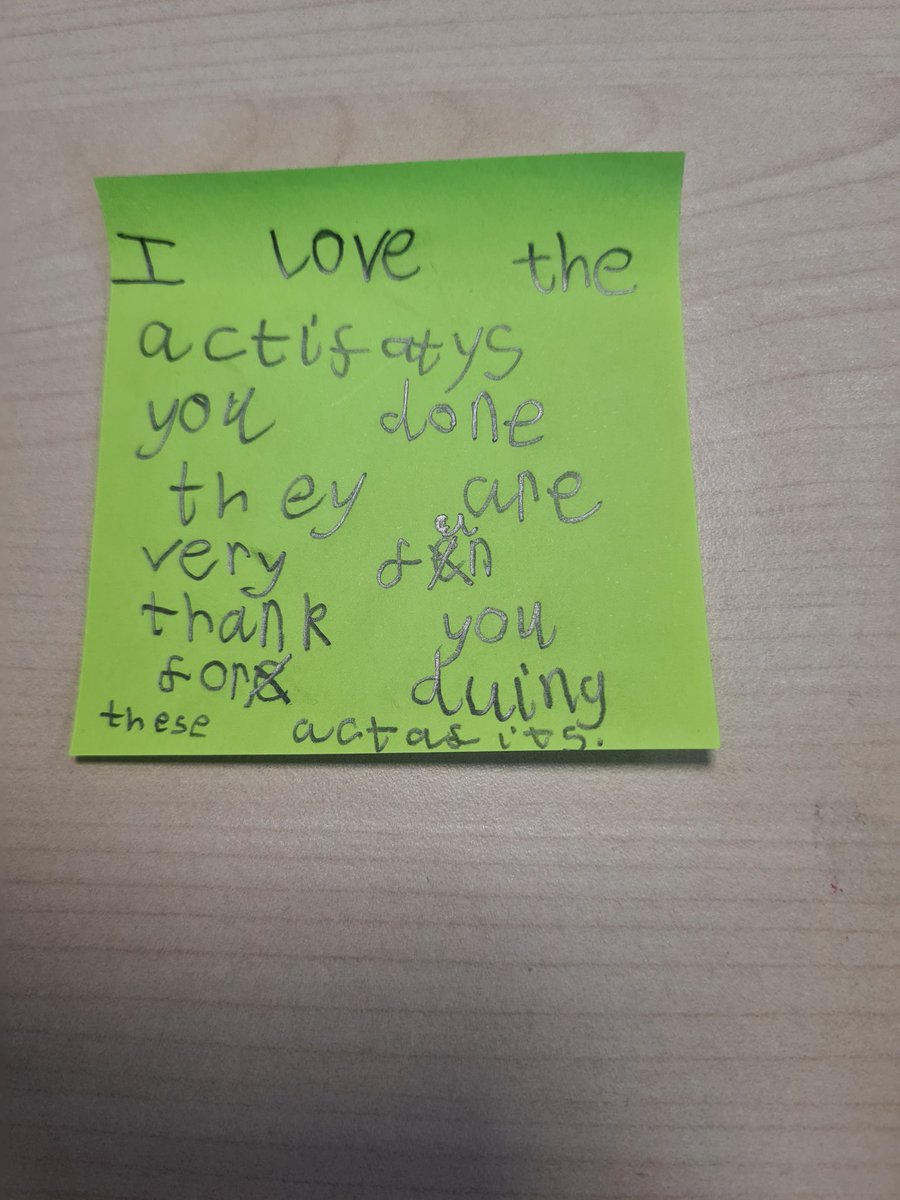 I love the
actifatys
you done
they are
very fun
thank you
for duing
these actafits.